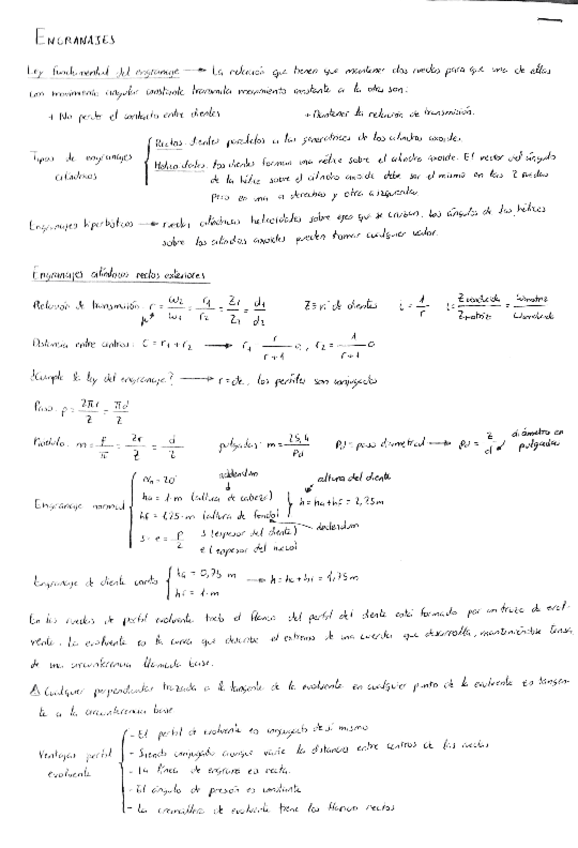 ENGRANAJES
Ley fundamental del engranaje → La relación que tienen que mantener dos ruedas para que una de ellas
con movimiento angular constante transmita movimiento constante a la otra son:
+ No perder el contacto entre dientes + Mantener la relación de transmisión.
Tipos de engranajes cilíndricos
Rectos: dientes paralelos a las generatrices de los cilindros axoides.
Helicoidales: los dientes forman una hélice sobre el cilindro axoide. El vector del ángulo
de la hélice sobre el cilindro axoide debe ser el mismo en las 2 ruedas
pero en una a derechas y otra a izquierdas
Engranajes hiperbólicos → ruedas cilíndricas helicoidales sobre ejes que se cruzan. Los ángulos de las hélices
sobre los cilindros axoides pueden tomar cualquier valor.
Engranajes cilíndricos rectos exteriores
Relación de transmisión r = ω2/ω1 = r1/r2 = Z1/Z2 = d1/d2 Z = nº de dientes i = 1/r
Distancia entre centros: C = r1 + r2 →
¿Cumple la ley del engranaje? → r = cte, los perfiles son conjugados
Paso: p = 2πr/Z = πd/Z
Módulo: m = p/π = 2r/Z = d/Z pulgadas: m = 25,4/Pd Pd = paso diametral → Pd = Z/d diámetro en pulgadas
Engranaje normal
addendum altura del diente
ha = 1·m (altura de cabeza)
hf = 1,25·m (altura de fondo) h = ha + hf = 2,25m
dedendum
s = e = p/2 s (espesor del diente)
e (espesor del hueco)
Engranaje de diente corto
ha = 0,75 m → h = ha + hf = 1,75m
hf = 1·m
En las ruedas de perfil evolvente todo el flanco del perfil del diente está formado por un trozo de evol-
vente. La evolvente es la curva que describe el extremo de una cuerda que desarrolla, manteniéndose tensa,
de una circunferencia llamada base.
⚠ Cualquier perpendicular trazada a la tangente de la evolvente en cualquier punto de la evolvente es tangen-
te a la circunferencia base
Ventajas perfil evolvente
- El perfil de evolvente es conjugado de sí mismo
- Siendo conjugado aunque varíe la distancia entre centros de las ruedas
- La línea de engrane es recta.
- El ángulo de presión es constante
- La cremallera de evolvente tiene los flancos rectos